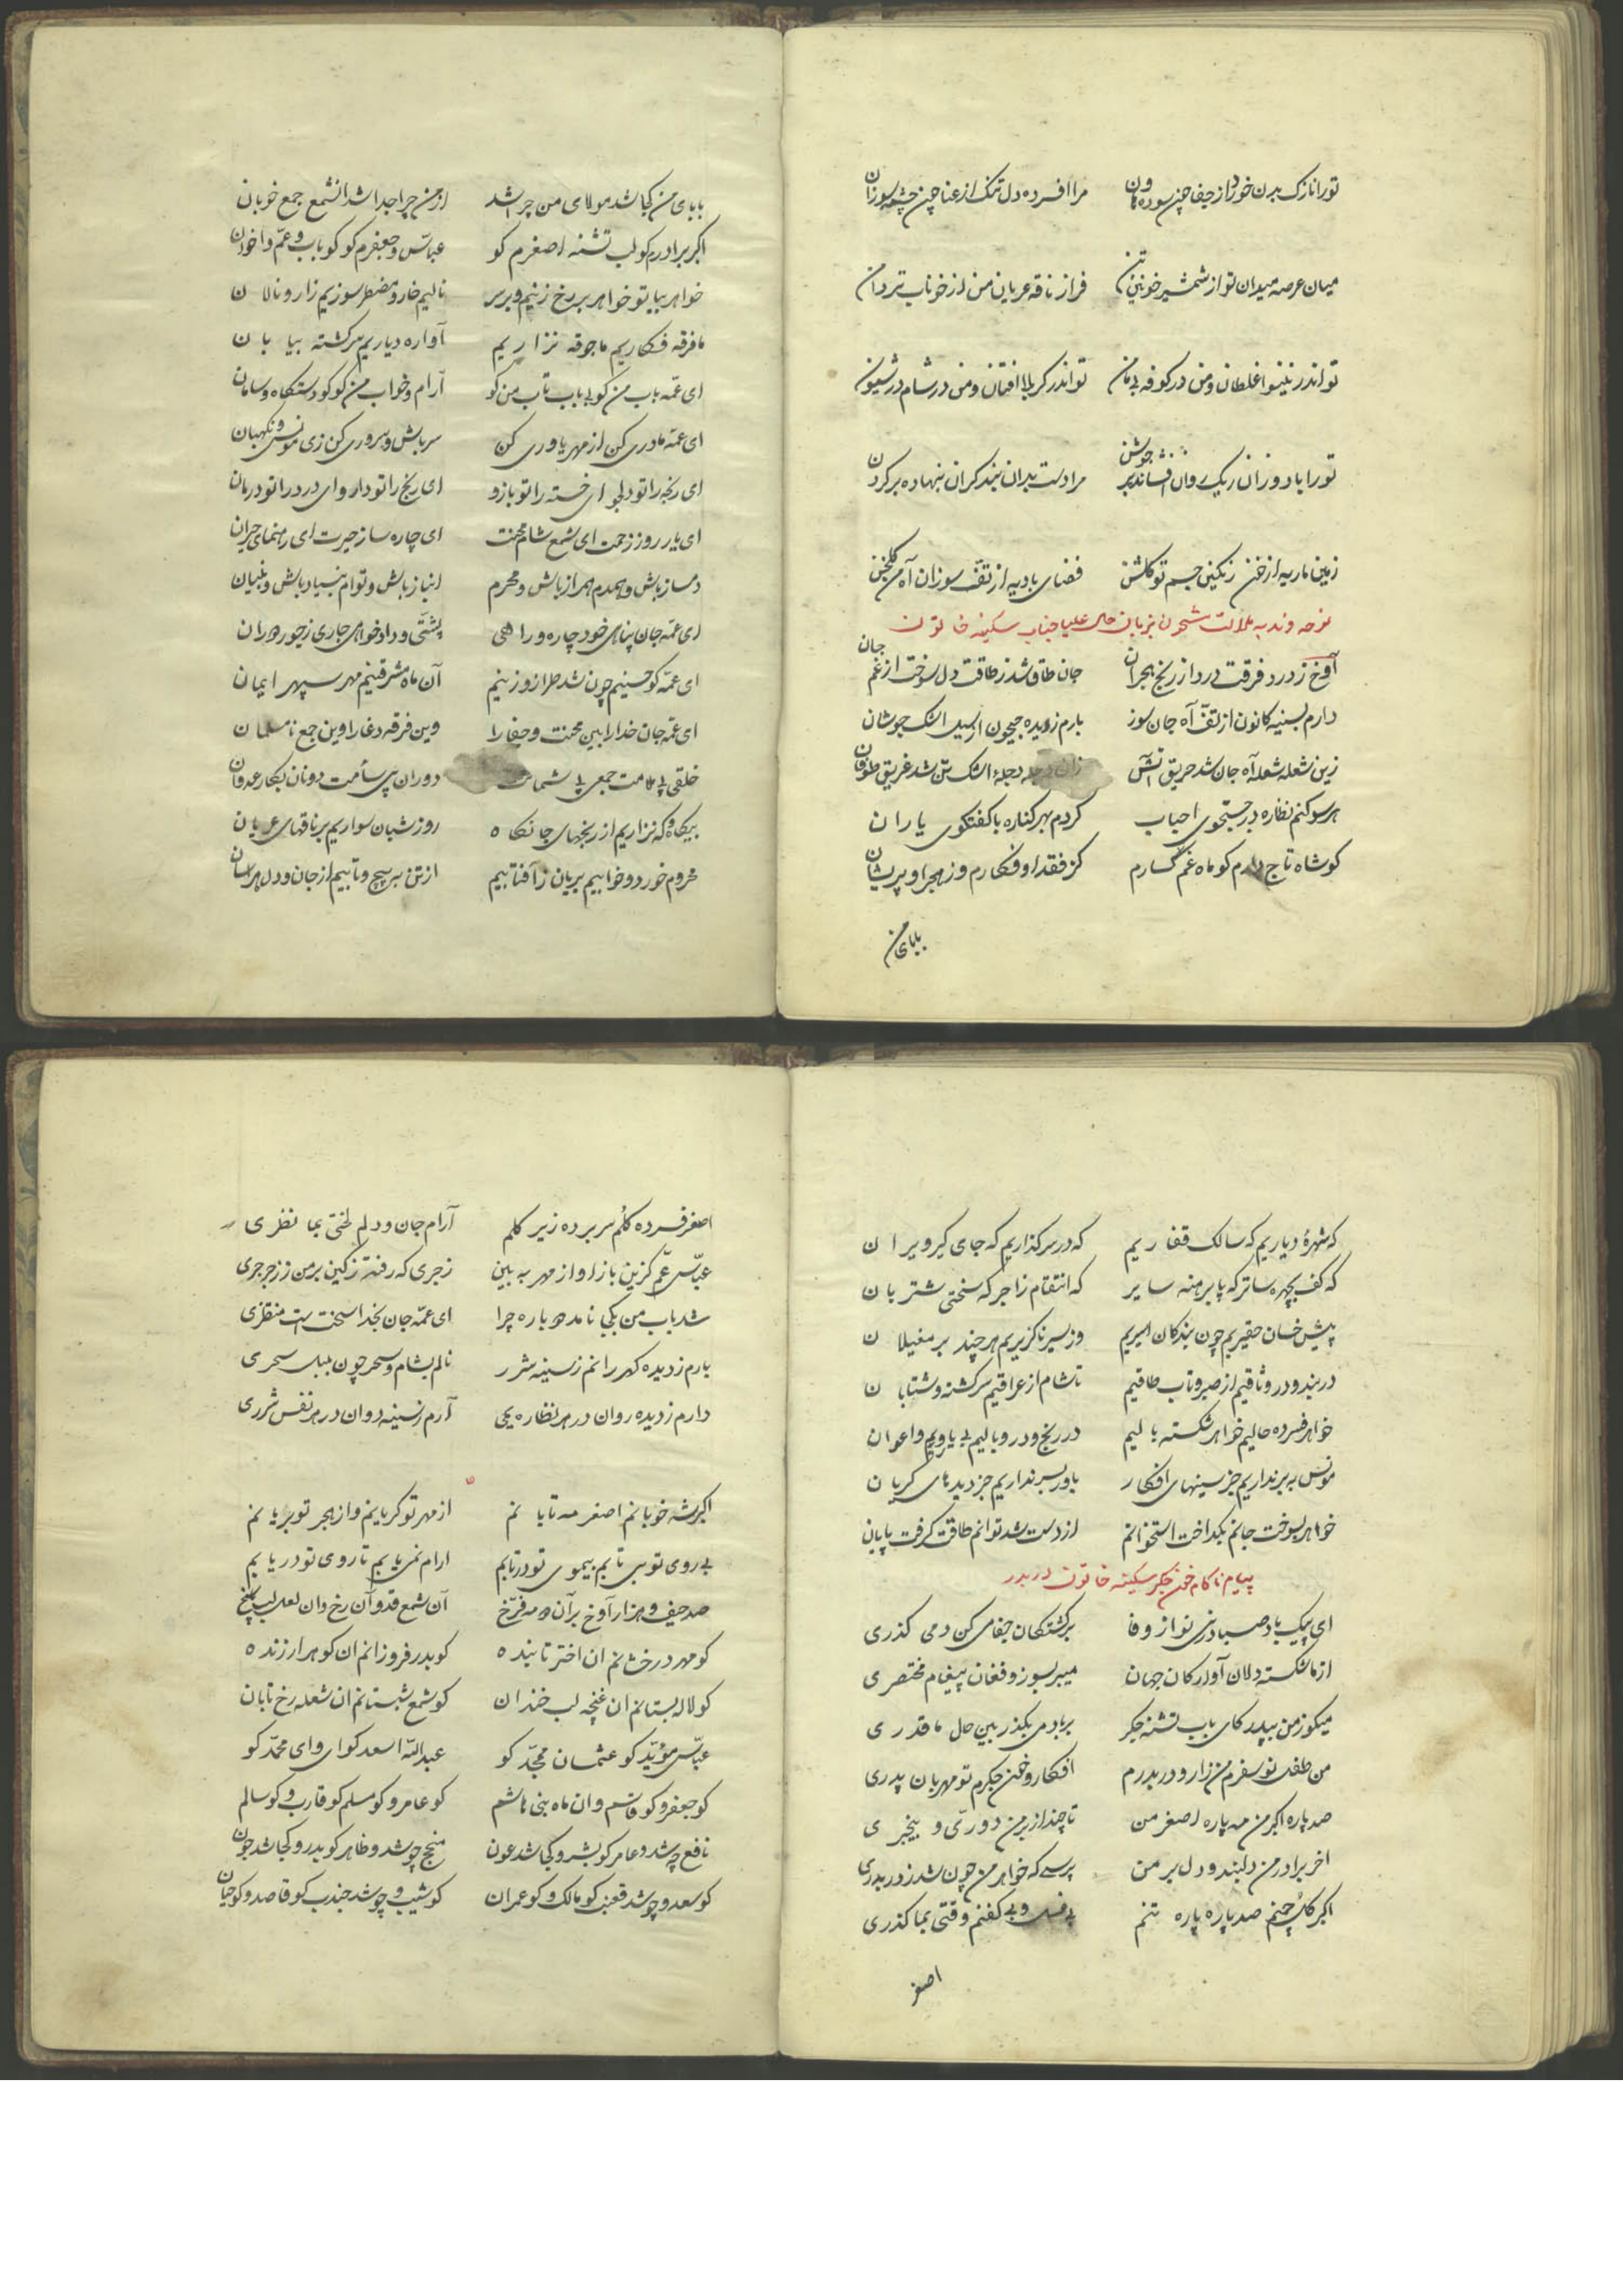 تو را نازک بدن خورد از جفا چون سوده هاون مرا افسرده دل تنک از عنا چون چشمه سوزان
میان عرصه میدان تو از شمشیر خونین تن فراز ناقه عریان من از خوناب تر دامن
تو اندر نینوا غلطان و من در کوفه بی مامن تو اندر کربلا افتان و من در شام در شیون
تو را باد وزان ریک روان افشاند بر جوشن مرا دست بدان بند کران بنهاده بر کردن
زمین ماریه از خون رنکین جسم تو کلشن فضای بادیه از تف سوزان آه من کلخن
نوحه و ندبه ملالت مشحون بزبان حال علیا جناب سکینه خاتون
آوخ ز درد فرقت درد از رنج هجران جان طاق شد ز طاقت دل سوخت از غم جان
دارم بسینه کانون از تف آه جان سوز بارم ز دیده جیحون از سیل اشک جوشان
زین شعله شعله آه جان شد حریق آتش زان دجله دجلۀ اشک تن شد غریق طوفان
هر سو کنم نظاره در جستجوی احباب کردم بهر کناره با کفتکوی یاران
کو شاه تاج دارم کو ماه غم کسارم کز فقد او فکارم وز هجر او پریشان
بابای من
بابای من کجا شد مولای من چرا شد از من چرا جدا شد آنشمع جمع خوبان
اکبر برادرم کو لب تشنه اصغرم کو عباس و جعفرم کو کو باب و عم و اخوان
خواهر بیا تو خواهر بر رخ زنیم و بر سر نالیم خار و مضطر سوزیم زار و نالان
ما فرقه فکاریم ما جوقه نزاریم آواره دیاریم سرکشته بیابان
ای عمه باب من کو بی باب تاب من کو آرام و خواب من کو کو دستکاه و سامان
ای عمه مادری کن از مهر یاوری کن سر باش و سروری کن زی مونس و نکهبان
ای رنجه را تو دلجو ای خسته را تو بازو ای رنج را تو دارو ای درد را تو درمان
ای یار روز زحمت ای شمع شام محنت ای چاره ساز حیرت ای رهنمای حیران
دمساز باش و همدم همراز باش و محرم انباز باش و توام بنیاد باش و بنیان
ای عمه جان پناهی خود چاره و راهی پشتی و دادخواهی جاری ز جور دوران
ای عمه کو حسینم چون شد طراز و زینم آن ماه مشرقینم مهر سپهر ایمان
ای عمه جان خدا را بین محنت و جفا را وین فرقه دغا را وین جمع نامسلمان
خلقی پی ملامت جمعی پی شماتت دوران پی سأمت دونان بکار عدوان
بیکاه و که نزاریم از رنجهای جانکاه روز شبان سواریم بر ناقهای عریان
محروم خورد و خوابیم بریان ز آفتابیم از تن به پیچ و تابیم از جان و دل هراسان
که شهرۀ دیاریم که سالک قفاریم که در سر کذاریم که جای کیر ویران
که کف بچهره ساتر که پا برهنه سایر که انتقام زاجر که سختی شتربان
پیش خسان حقیریم چون بندکان اسیریم وز سیر ناکزیریم هر چند بر مغیلان
در بند و در وثاقیم از صبر و تاب طاقیم تا شام از عراقیم سرکشته و شتابان
خواهر فسرده حالیم خواهر شکسته بالیم در رنج و در وبالیم بی یاور و اعوان
مونس به بر نداریم جز سینهای افکار یاور بسر نداریم جز دیدهای کریان
خواهر بسوخت جانم بکداخت استخوانم از دست شد توانم طاقت کرفت پایان
پیام ناکام خونین جکر سکینه خاتون در بدر
ای پیک باد صبا در نی نواز وفا بر کشتکان جفا می کن دمی کذری
از ما شکسته دلان آوارکان جهان میبر بسوز و فغان پیغام مختصری
میکو ز من بپدر کای باب تشنه جکر بر ما دمی بکذر بین حال ما قدری
من طفل نوسفرم من زار و در بدرم افکار و خون جکرم تو مهربان پدری
صد پاره اکبر من مه پاره اصغر من تا چند از بر من دوری و بیخبری
آخر برادر من دلبند و دل بر من پرسی که خواهر من چون شد ز در بدری
اکبر کل چمنم صد پاره پاره تنم بی غسل و بی کفنم وقتی بما کذری
اصغر
اصغر فسرده کلم سر برده زیر کلم آرام جان و دلم لختی بما نظری
عباس عم کزین باز او از مهر به بین زجری که رفته ز کین بر من ز زجر جری
شد باب من بکجا نامد دوباره چرا ای عمه جان بخدا سخت است منتظری
بارم ز دیده کهر رانم ز سینه شرر نالم بشام و سحر چون بلبل سحری
دارم ز دیده روان در هر نظاره یمی آرم ز سینه دوان در هر نفس شرری
اکبر شه خوبانم اصغر مه تابانم از مهر تو کریانم وز هجر تو بریانم
بی روی تو بی تابم بیموی تو در تابم آرام نمی یابم تا روی تو دریابم
صد حیف و هزار آوخ بر آن مه فرخ آن شمع قد و آن رخ وان لعل لب پاسخ
کو مهر درخشانم ان اختر تابنده کو بدر فروزانم ان کوهر ارزنده
کو لاله بستانم ان غنچه لب خندان کو شمع شبستانم ان شعله رخ تابان
عباس مؤید کو عثمان ممجد کو عبدالله اسعد کو ای وای محمد کو
کو جعفر و کو قاسم وان ماه بنی هاشم کو عامر و کو مسلم کو قارب و کو سالم
نافع چه شد و عامر کو بشر و کجا شد عون منجح چو شد و طاهر کو بدر و کجا شد جون
کو سعد و چو شد قعنب کو مالک و کو عمران کو شبیب و چو شد جندب کو قاصد و کو حیان